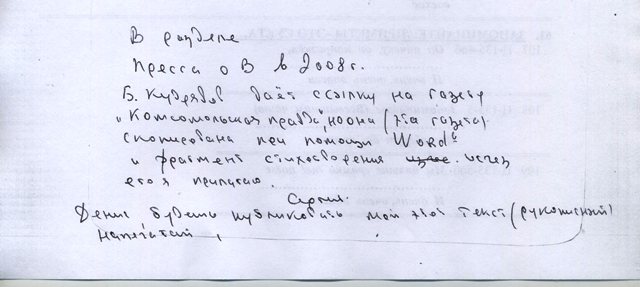 В разделе
Пресса о В в 2008 г.
Б. Кудрядов даёт ссылку на газету
"Комсомольская правда", но она (эта газета)
скопирована при помощи Word'а
и фрагмент стихотворения исчез
его я прилагаю.
Сергей.
Денис, будешь публиковать мой этот текст (рукописный)
напечатай,